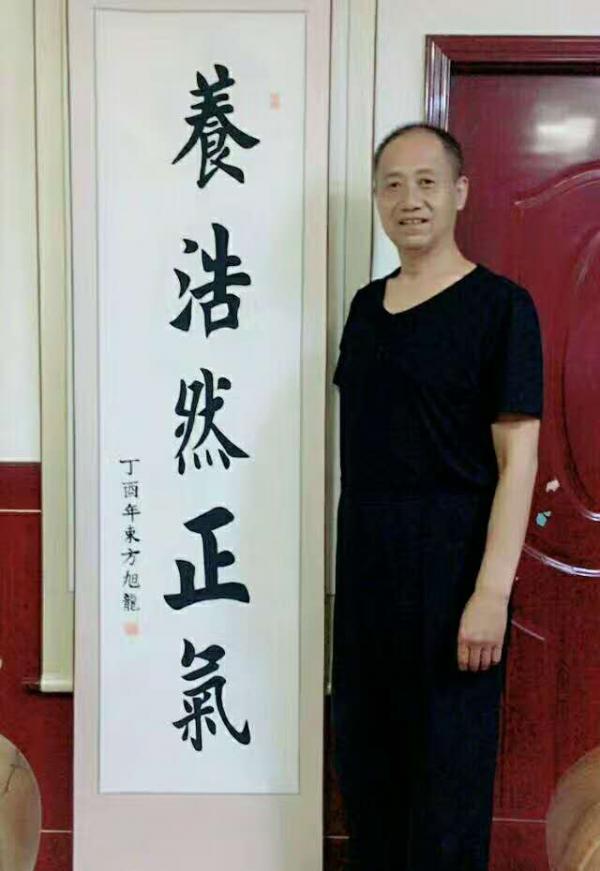 養浩然正氣
丁酉年東方旭龍